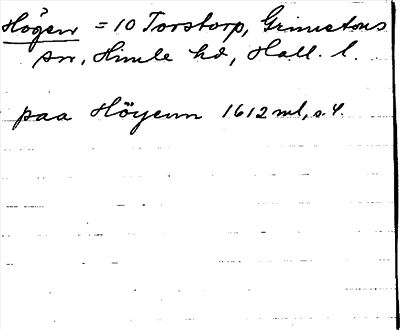 Högen = 10 Torstorp, Grimetons
sn, Himle hd, Hall. l.
paa Höyenn 1612 ml, s. 4.